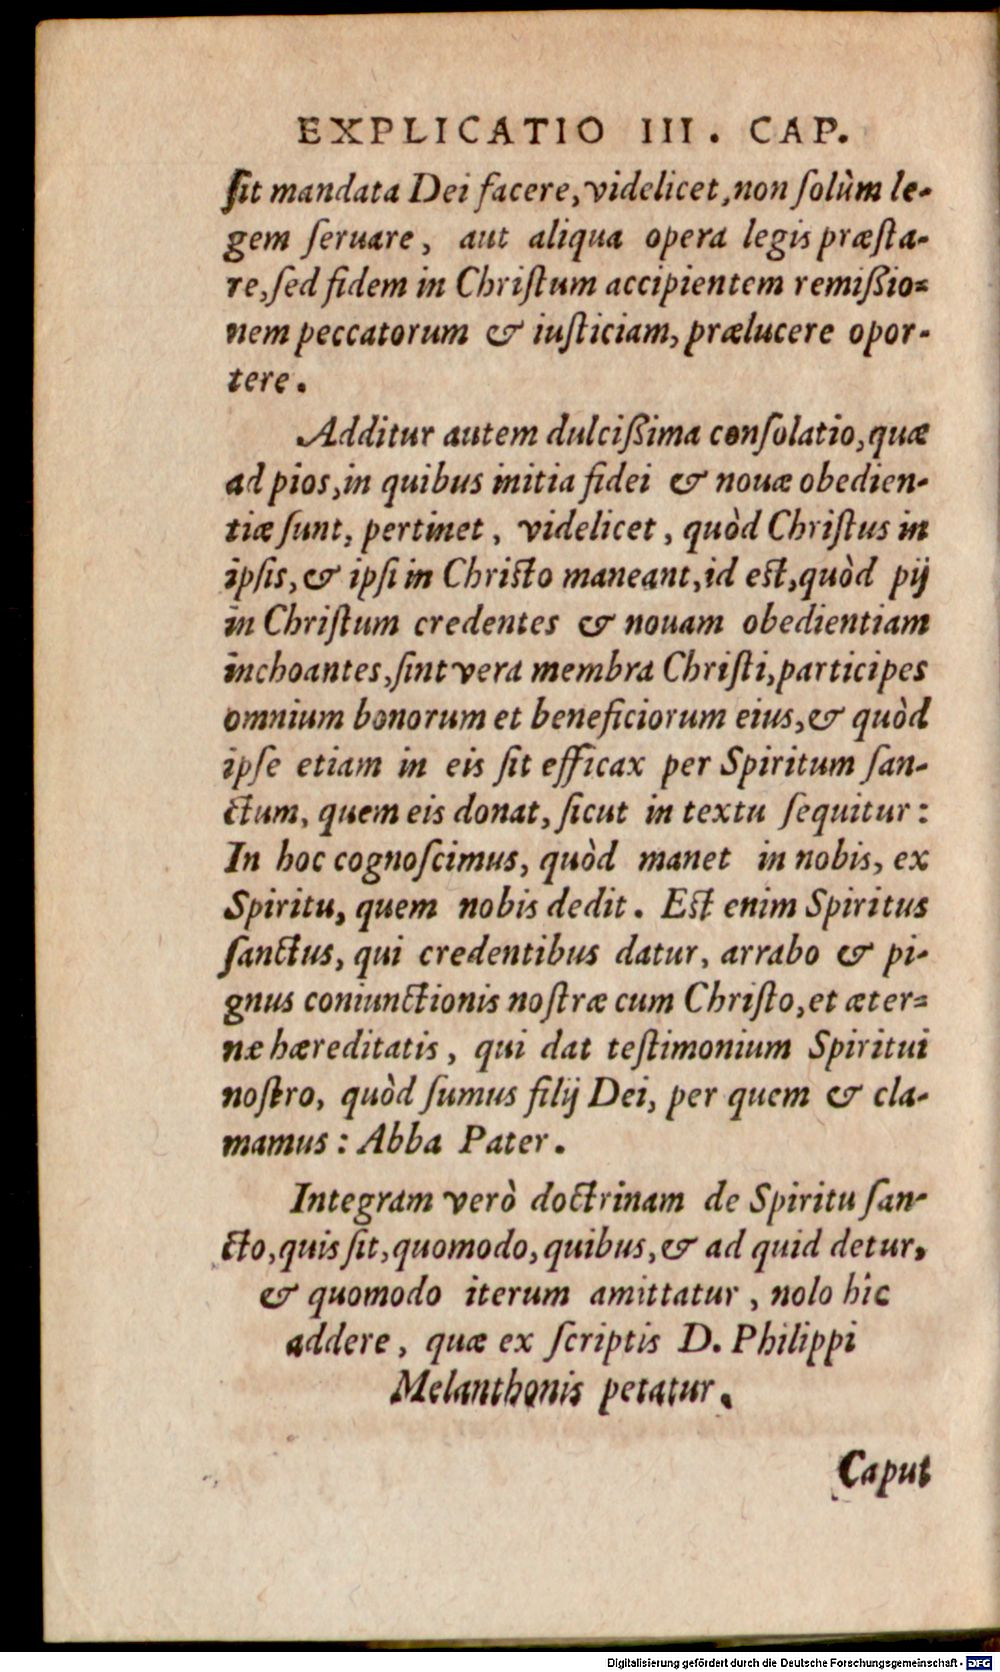 EXPLICATIO III. CAP.
ſit mandata Dei facere, videlicet, non ſolùm le-
gem ſeruare, aut aliqua opera legis præſta-
re, ſed fidem in Chriſtum accipientem remißio=
nem peccatorum & iuſticiam, prælucere opor-
tere.
Additur autem dulcißima conſolatio, quæ
ad pios, in quibus initia fidei & nouæ obedien-
tiæ ſunt, pertinet, videlicet, quòd Chriſtus in
ipſis, & ipſi in Chriſto maneant, id eſt, quòd pij
in Chriſtum credentes & nouam obedientiam
inchoantes, ſint vera membra Chriſti, participes
omnium bonorum et beneficiorum eius, & quòd
ipſe etiam in eis ſit efficax per Spiritum ſan-
ctum, quem eis donat, ſicut in textu ſequitur:
In hoc cognoſcimus, quòd manet in nobis, ex
Spiritu, quem nobis dedit. Eſt enim Spiritus
ſanctus, qui credentibus datur, arrabo & pi-
gnus coniunctionis noſtræ cum Chriſto, et æter=
næ hæreditatis, qui dat teſtimonium Spiritui
noſtro, quòd ſumus filij Dei, per quem & cla-
mamus: Abba Pater.
Integram verò doctrinam de Spiritu ſan-
cto, quis ſit, quomodo, quibus, & ad quid detur,
& quomodo iterum amittatur, nolo hic
addere, quæ ex ſcriptis D. Philippi
Melanthonis petatur.
Caput
Digitalisierung gefördert durch die Deutsche Forschungsgemeinschaft - DFG